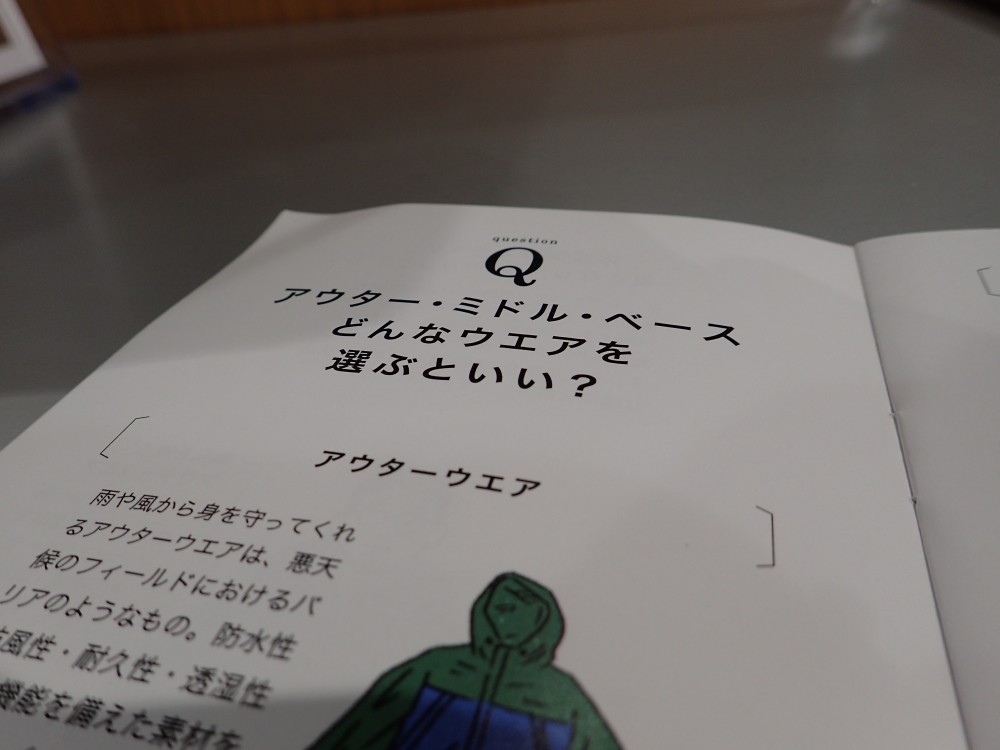 question
Q
アウター・ミドル・ベース
どんなウエアを
選ぶといい?
アウターウエア
雨や風から身を守ってくれ
るアウターウエアは、悪天
候のフィールドにおけるバ
リアのようなもの。防水性
防風性・耐久性・透湿性
機能を備えた素材を